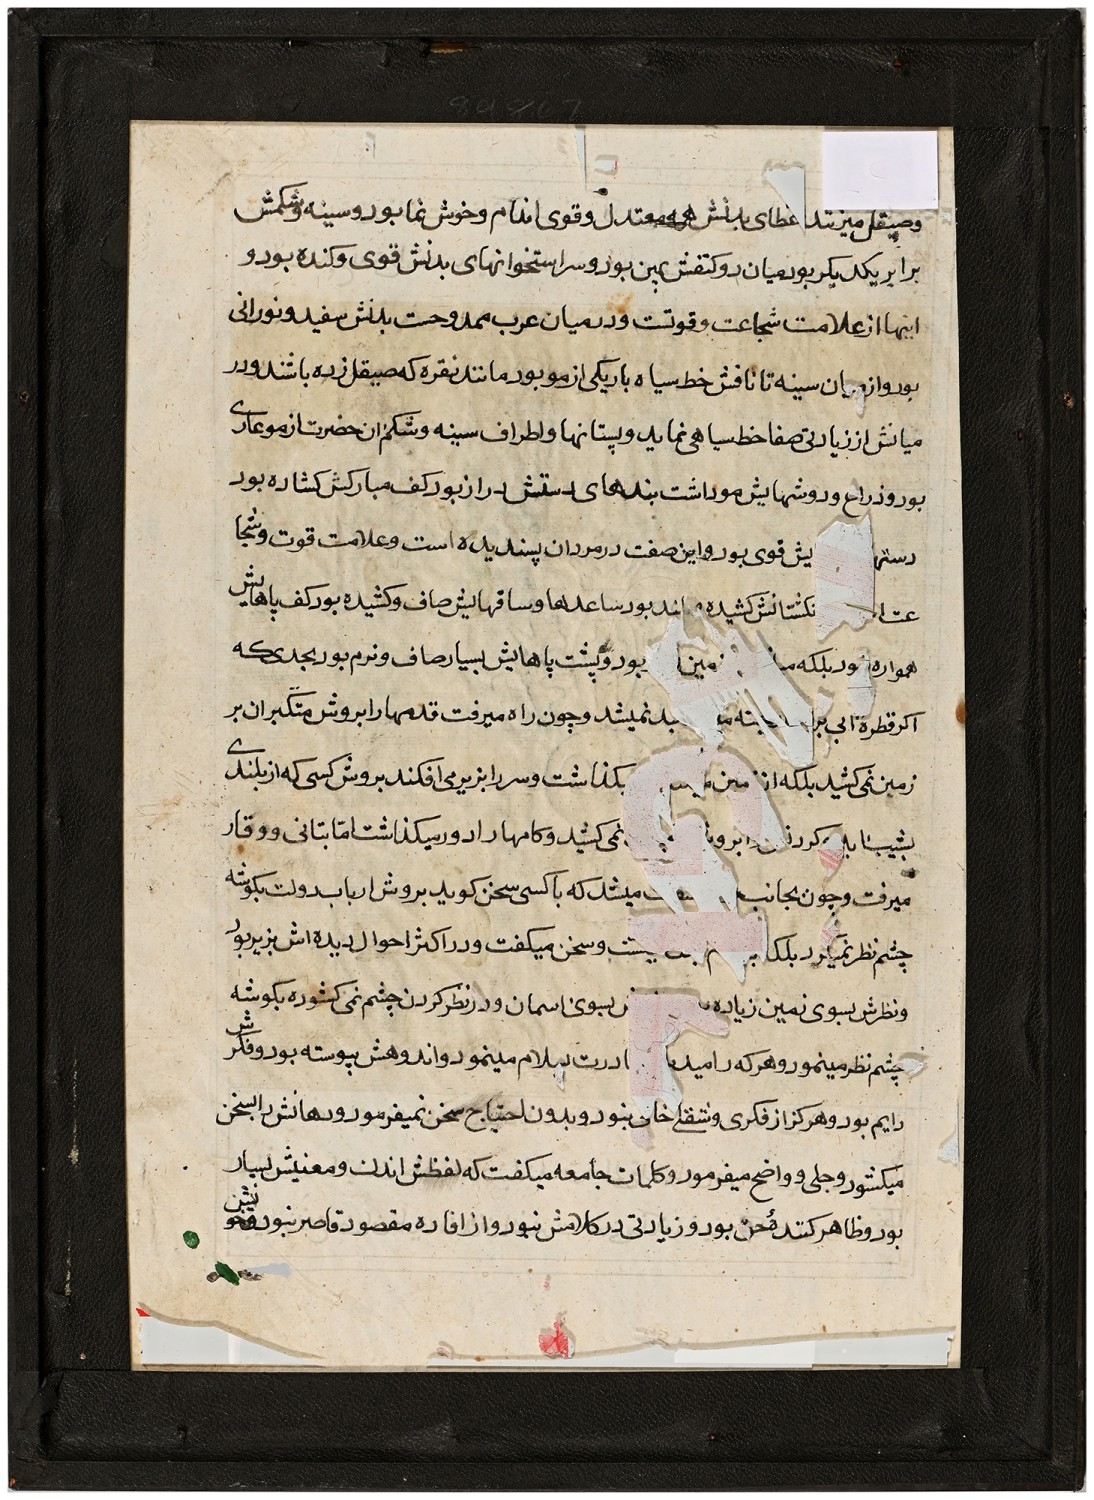 وصیقل میزنند اعضای بدنش همه معتدل و قوی اندام و خوش نما بود و سینه و شکمش
برابر یکدیگر بود میان دو کتفش پهن بود و سر استخوانهای بدنش قوی و کنده بود و
اینها از علامت شجاعت و قوتست و در میان عرب ممدوحست بدنش سفید و نورانی
بود و از میان سینه تا نافش خط سیاه باریکی از مو بود مانند نقره که صیقل زده باشند و در
میانش از زیادتی صفا خط سیاهی نماید و پستانها و اطراف سینه و شکم ان حضرت از مو عاری
بود و ذراع و دوشهایش مو داشت بندهای دستش دراز بود کف مبارکش کشاده بود
یش قوی بود و این صفت در مردان پسندیده است و علامت قوت و شجا
عت نکشتانش کشیده بود ساعدها و ساقهایش صاف و کشیده بود کف پاهایش
هموار بلکه بود و پشت پاهایش بسیار صاف و نرم بود بحدی که
اکر قطره ابی بر نمیشد و چون راه میرفت قدمها را بروش متکبران بر
زمین نمی کشید بلکه از زمین بکذاشت و سر را بزیر می افکند بروش کسی که از بلندی
بشیب اید و کردن را نمی کشید و کامها را دور میکذاشت اما بتانی و وقار
میرفت و چون بجانب میشد که با کسی سخن کوید بروش ارباب دولت بکوشه
چشم نظر نمیکرد بلکه و سخن میکفت و در اکثر احوال دیده اش بزیر بود
و نظرش بسوی زمین زیاده بسوی اسمان و در نظر کردن چشم نمی کشوده بکوشه
چشم نظر مینمود و هر که را میدید سلام مینمود و اندوهش پیوسته بود و فکرش
دایم بود و هرکز از فکری و شغلی خالی نبود و بدون احتیاج سخن نمیفرمود و دهانش را بسخن
میکشود و جلی و واضح میفرمود و کلمات جامعه میکفت که لفظش اندک و معنیش بسیار
بود و ظاهر کننده حق بود و زیادتی در کلامش نبود و از افاده مقصود قاصر نبود و خو